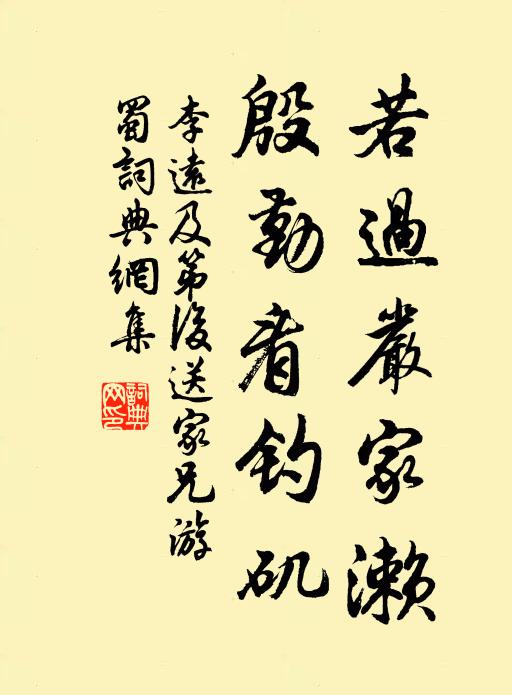 若過嚴家瀨
殷勤看釣矶
李遠及第後送家兄游
蜀詞典網集
詞典
网印